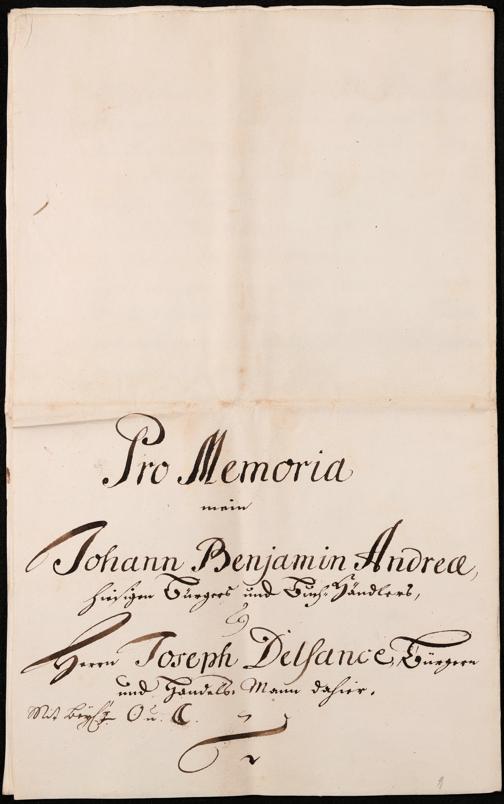 Pro Memoria
mein
Johann Benjamin Andreæ,
hiesigen Burgers und Buch-Händlers,
Herrn Joseph Delsance, Bürgern
und Handels-Mann dahier.
Mit